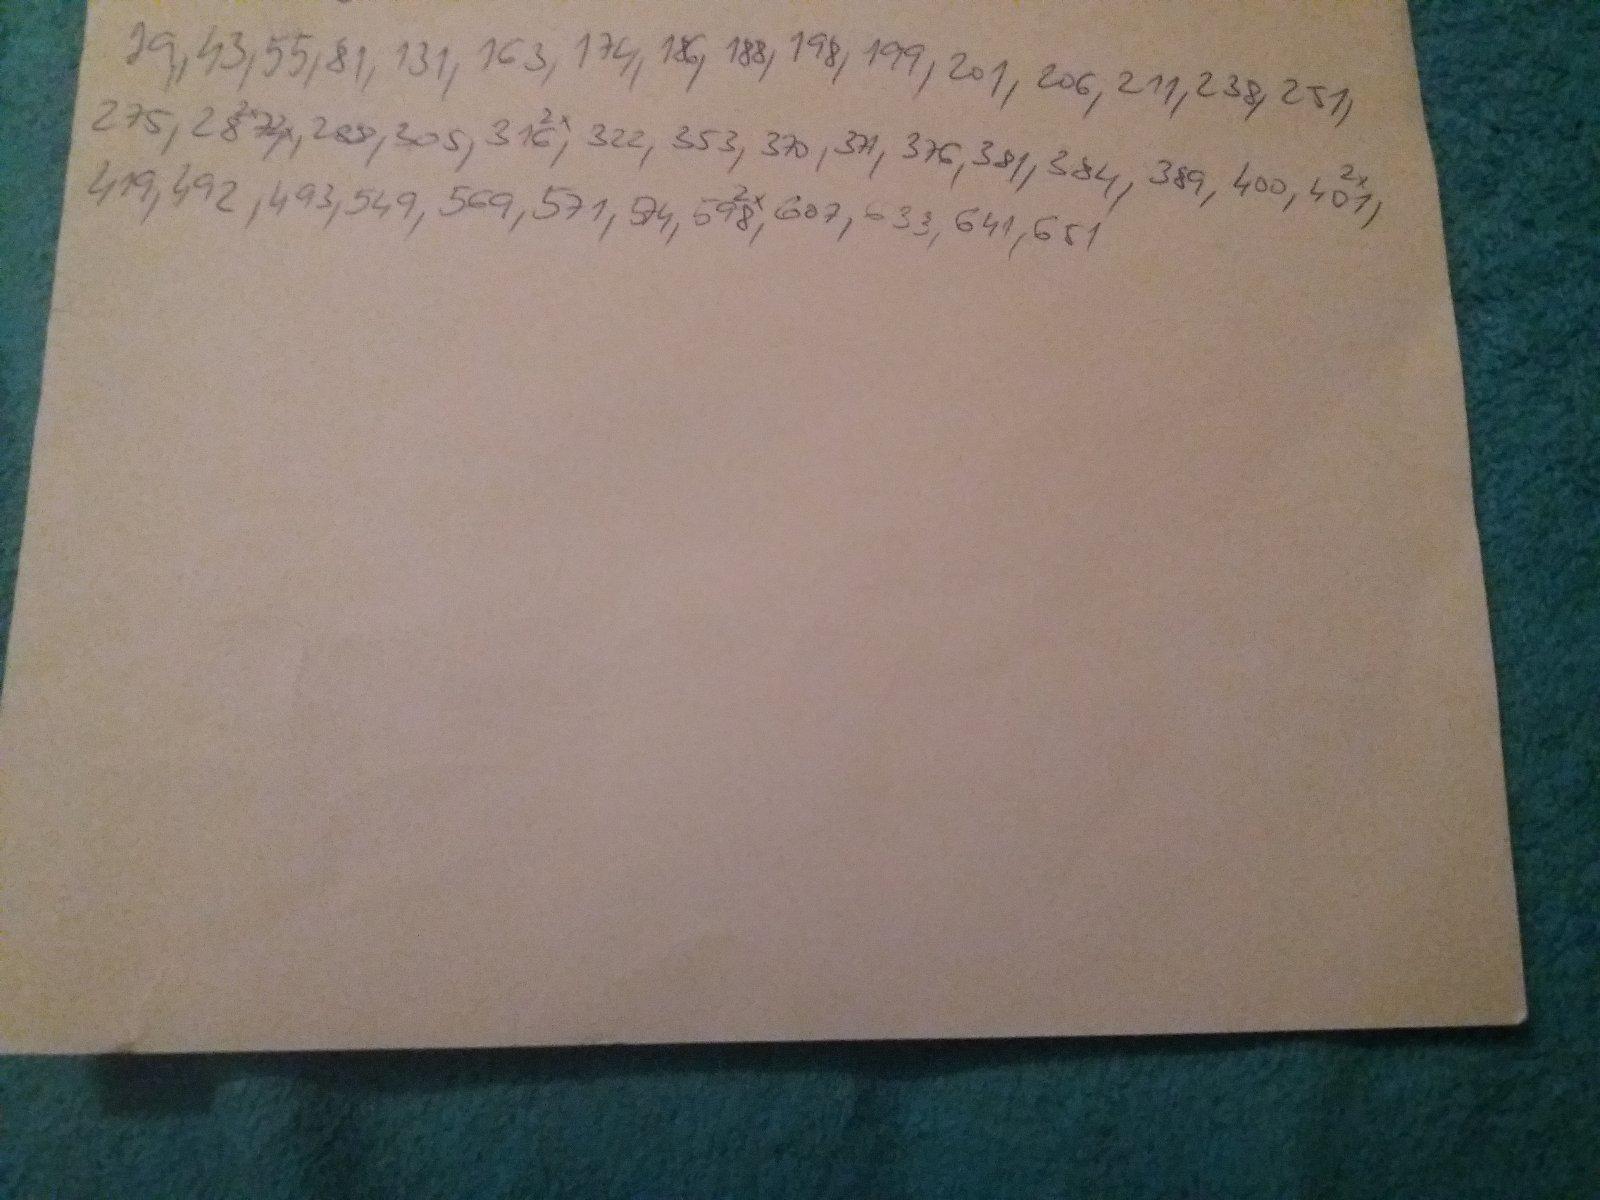 29, 43, 55, 81, 131, 163, 174, 186, 188, 198, 199, 201, 206, 211, 238, 251,
275, 305, 316 2x, 322, 353, 370, 371, 376, 381, 384, 389, 400, 401 2x,
419, 492, 493, 549, 569, 571, 574, 598 2x, 607, 633, 641, 651